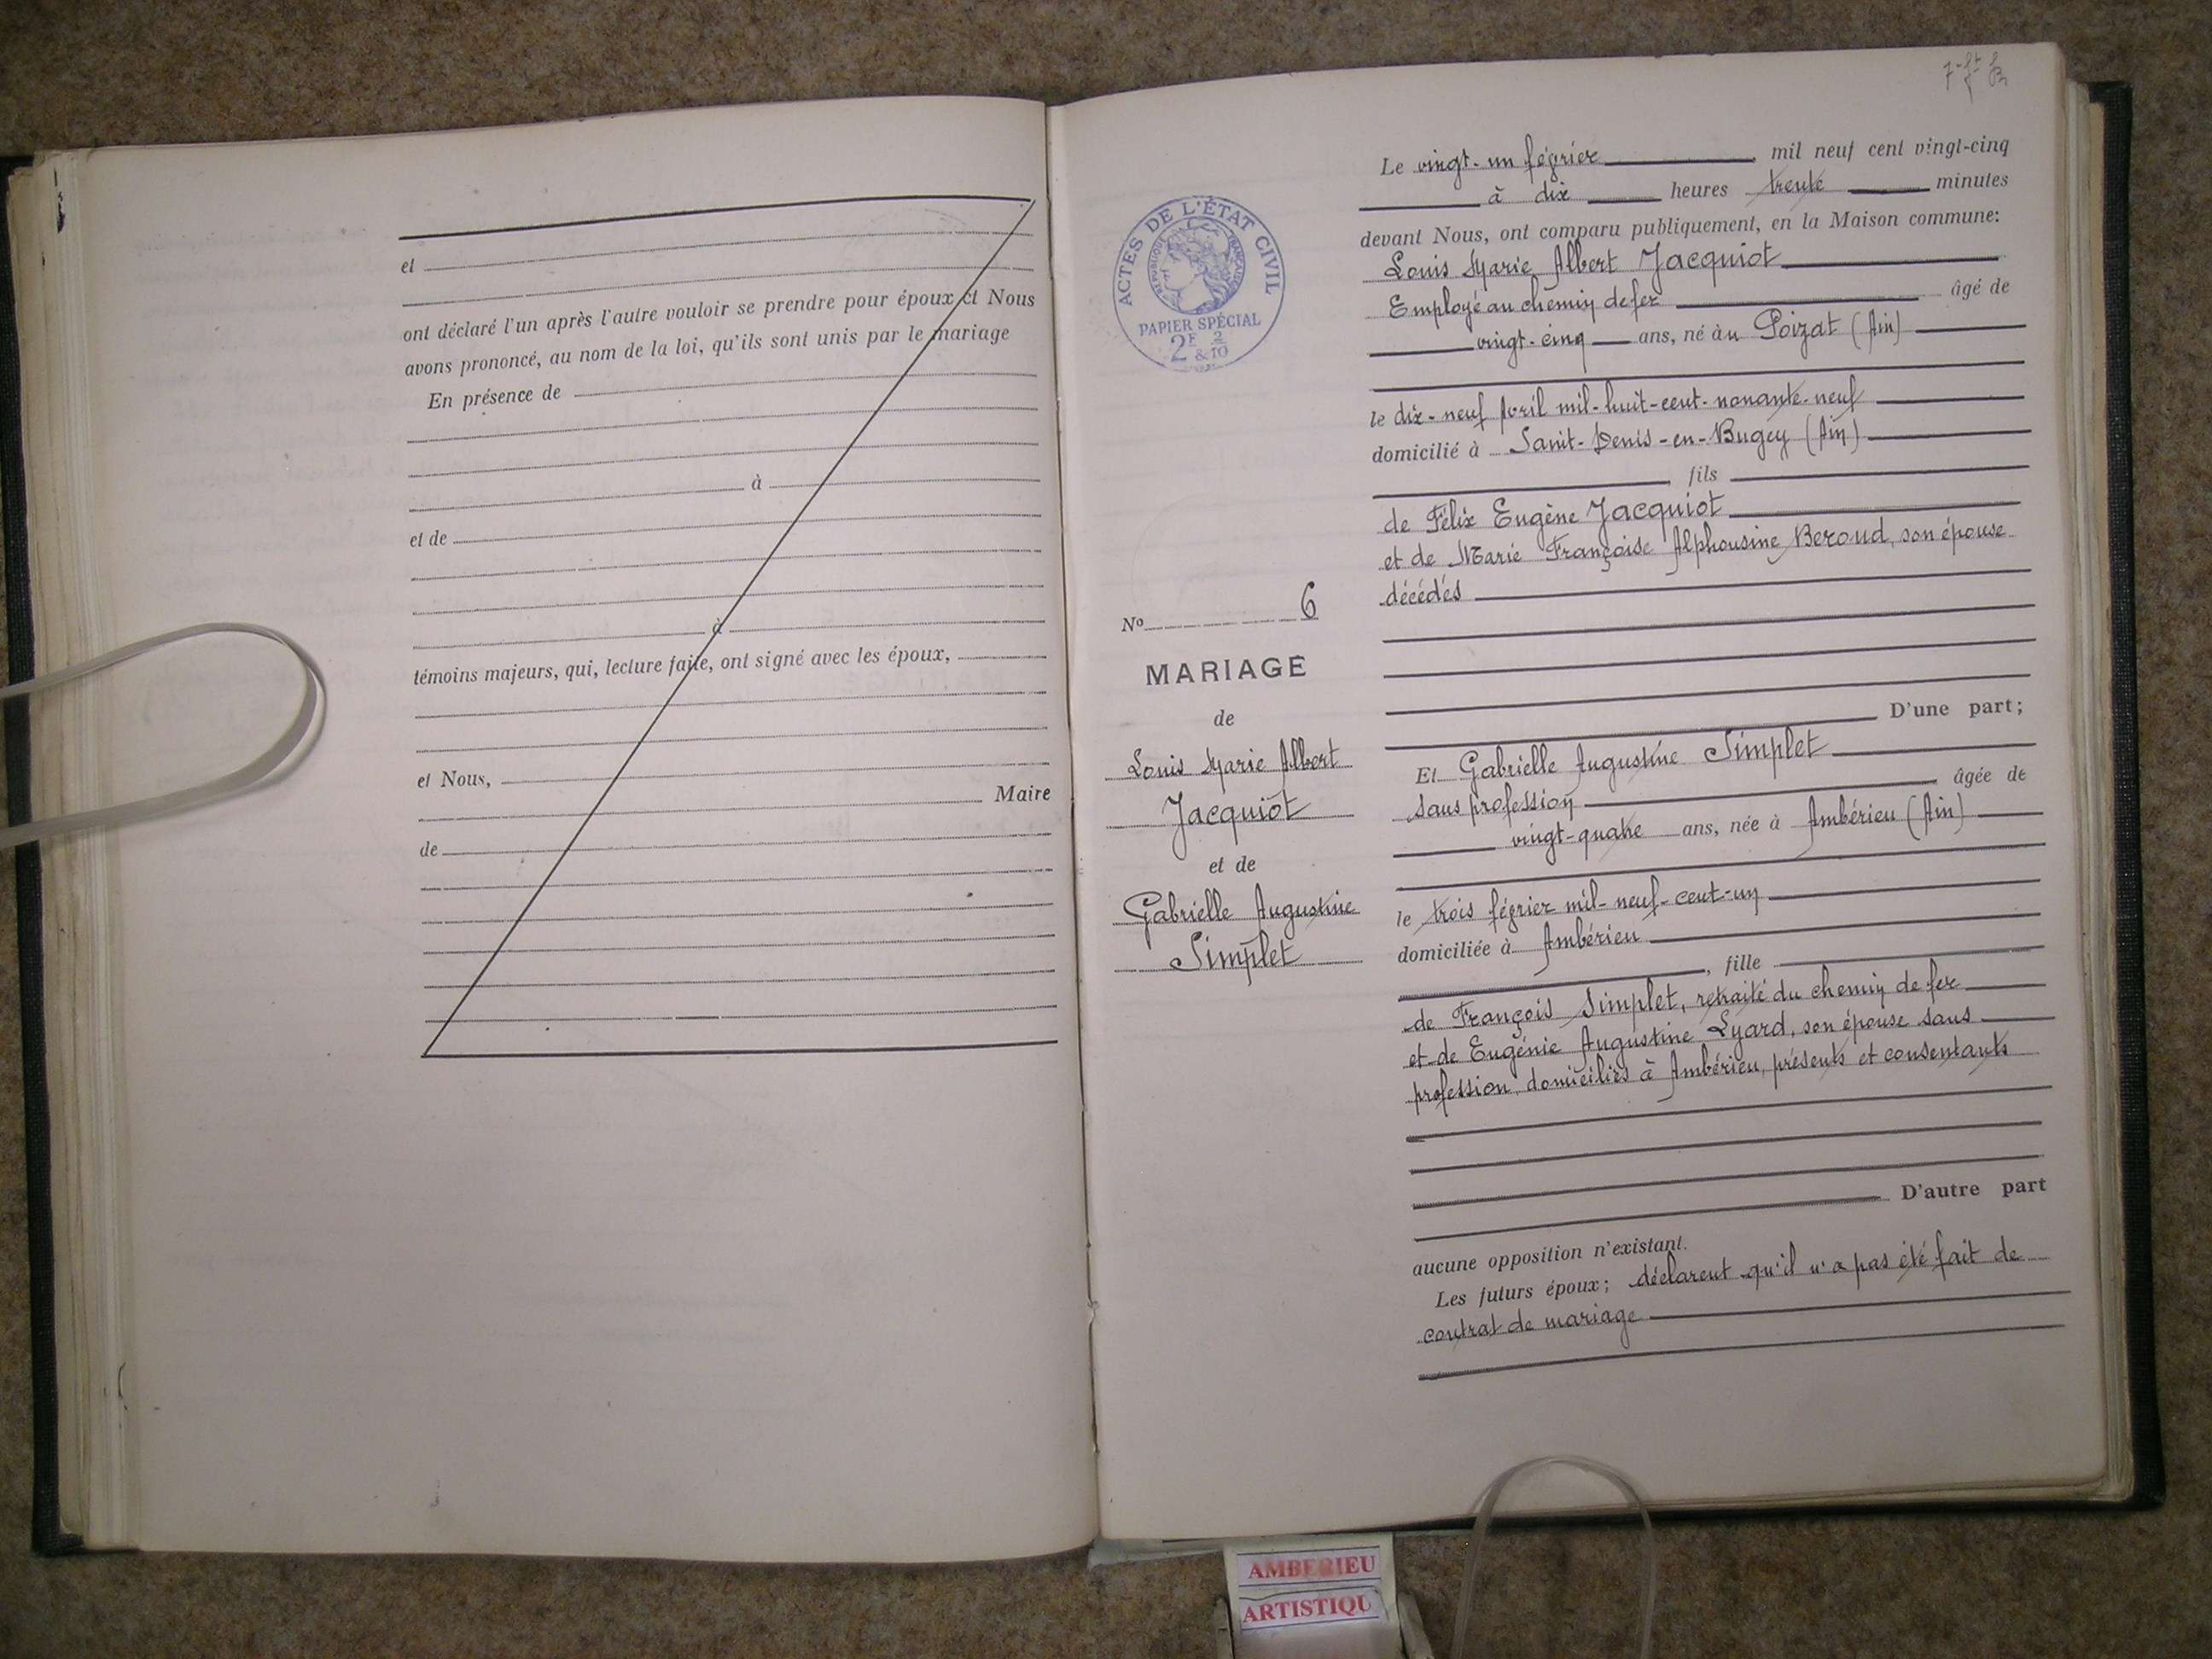 et
ont déclaré l'un après l'autre vouloir se prendre pour époux et Nous
avons prononcé, au nom de la loi, qu'ils sont unis par le mariage
En présence de
à
et de
à
témoins majeurs, qui, lecture faite, ont signé avec les époux,
et Nous,
Maire
de
ACTES DE L'ÉTAT CIVIL
RÉPUBLIQUE FRANÇAISE
PAPIER SPÉCIAL
2F 2
&10
No 6
MARIAGE
de
Louis Marie Albert
Jacquiot
et de
Gabrielle Augustine
Simplet
Le vingt-un février mil neuf cent vingt-cinq
à dix heures trente minutes
devant Nous, ont comparu publiquement, en la Maison commune:
Louis Marie Albert Jacquiot
Employé au chemin de fer âgé de
vingt-cinq ans, né àu Poizat (Ain)
le dix-neuf Avril mil-huit-cent-nonante-neuf
domicilié à Sanit-Denis-en-Bugey (Ain)
fils
de Félix Eugène Jacquiot
et de Marie Françoise Alphousine Beroud, son épouse
décédés
D'une part;
Et Gabrielle Augustine Simplet
sans profession âgée de
vingt-quatre ans, née à Ambérieu (Ain)
le trois février mil-neuf-cent-un
domiciliée à Ambérieu
, fille
de François Simplet, retraité du chemin de fer
et de Eugénie Augustine Lyard, son épouse sans
profession, domiciliés à Ambérieu, présents et consentants
D'autre part
aucune opposition n'existant.
Les futurs époux; déclarent qu'il n'a pas été fait de
contrat de mariage
AMBERIEU
ARTISTIQU